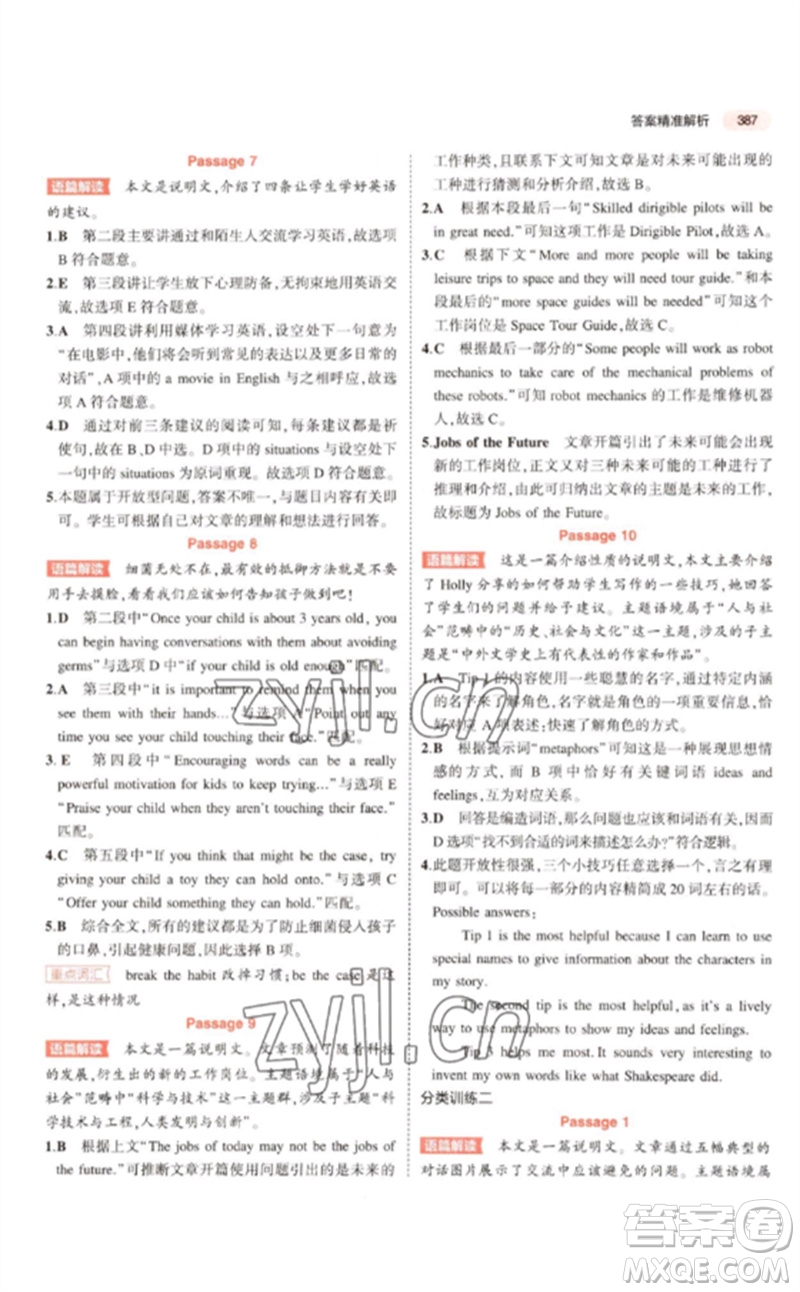 答案精准解析 387
Passage 7
语篇解读 本文是说明文,介绍了四条让学生学好英语
的建议。
1.B 第二段主要讲通过和陌生人交流学习英语,故选项
B 符合题意。
2.E 第三段讲让学生放下心理防备,无拘束地用英语交
流,故选项 E 符合题意。
3.A 第四段讲利用媒体学习英语,设空处下一句意为
“在电影中,他们将会听到常见的表达以及更多日常的
对话”,A 项中的 a movie in English 与之相呼应,故选
项 A 符合题意。
4.D 通过对前三条建议的阅读可知,每条建议都是祈
使句,故在 B、D 中选。D 项中的 situations 与设空处下
一句中的 situations 为原词重现。故选 D。
5.本题属于开放型问题,答案不唯一,与题目内容有关即
可。学生可根据自己对文章的理解和想法进行回答。
Passage 8
语篇解读 细菌无处不在,最有效的抵御方法就是不要
用手去摸脸,看看我们应该如何告知孩子做到吧!
1.D 第二段中“Once your child is about 3 years old, you
can begin having conversations with them about avoiding
germs”与选项 D 中“if your child is old enough”匹配。
2.A 第三段中“it is important to remind them when you
see them with their hands...”与选项 A“Point out any
time you see your child touching their face.”匹配。
3. E 第四段中“Encouraging words can be a really
powerful motivation for kids to keep trying...”与选项 E
“Praise your child when they aren't touching their face.”
匹配。
4.C 第五段中“If you think that might be the case, try
giving your child a toy they can hold onto.”与选项 C
“Offer your child something they can hold.”匹配。
5.B 综合全文,所有的建议都是为了防止细菌侵入孩子
的口鼻,引起健康问题,因此选择 B 项。
重点词汇 break the habit 改掉习惯;be the case是这
样,是这种情况
Passage 9
语篇解读 本文是一篇说明文。文章预测了随着科技
的发展,衍生出的新的工作岗位。主题语境属于“人与
社会”范畴中“科学与技术”这一主题群,涉及的子主题
是科学技术与工程,人类发明与创新。
1.B 根据上文“The jobs of today may not be the jobs of
the future.”可推断文章开篇使用问题引出的是未来的
工作种类,且联系下文可知文章是对未来可能出现的
工种进行猜测和分析介绍,故选 B。
2.A 根据本段最后一句“Skilled dirigible pilots will be
in great need.”可知该项工作是 Dirigible Pilot,故选 A。
3.C 根据下文“More and more people will be taking
leisure trips to space and they will need tour guide.”和本
段最后的“more space guides will be needed”可知这个
工作岗位是 Space Tour Guide,故选 C。
4.C 根据最后一部分的“Some people will work as robot
mechanics to take care of the mechanical problems of
these robots.”可知 robot mechanics 的工作是维修机器
人,故选 C。
5.Jobs of the Future 文章开篇引出了未来可能会出现
新的工作岗位,正文又对三种未来可能的工种进行了
推理和介绍,由此可归纳出文章的主题是未来的工作,
故标题为 Jobs of the Future。
Passage 10
语篇解读 这是一篇介绍性质的说明文,本文主要介绍
了 Holly 分享的如何帮助学生写作的一些技巧,她回答
了学生们的问题并给予建议。主题语境属于“人与社
会”范畴中的“历史、社会与文化”这一主题,涉及的子主
题是“中外文学史上有代表性的作家和作品”。
1.A Tip 1 的内容是使用一些聪慧的名字,通过特定内涵
的名字来了解角色,名字就是角色的一项重要信息,恰
好对应 A 项表述:快速了解角色的方式。
2.B 根据提示词“metaphors”可知这是一种展现思想情
感的方式,而 B 项中恰好有关键词语 ideas and
feelings,互为对应关系。
3.D 回答是编造词语,那么问题也应该和词语有关,而
D 选项“找不到合适的词来描述怎么办?”符合逻辑。
4.此题开放性很强,三个小技巧任选一个,言之有理
即可。把每一部分的内容精简成 20 词左右的话。
Possible answers:
Tip 1 is the most helpful because I can learn to use
special names to give information about the characters in
my story.
The second tip is the most helpful, as it's a lively
way to use metaphors to show my ideas and feelings.
Tip 3 helps me most. It sounds very interesting to
invent my own words like what Shakespeare did.
分类训练二
Passage 1
语篇解读 本文是一篇说明文。文章通过五幅典型的
对话图片展示了交流中应该避免的问题。主题语境属
zyjl.cn
zyjl.cn
答案卷
MXQE.COM